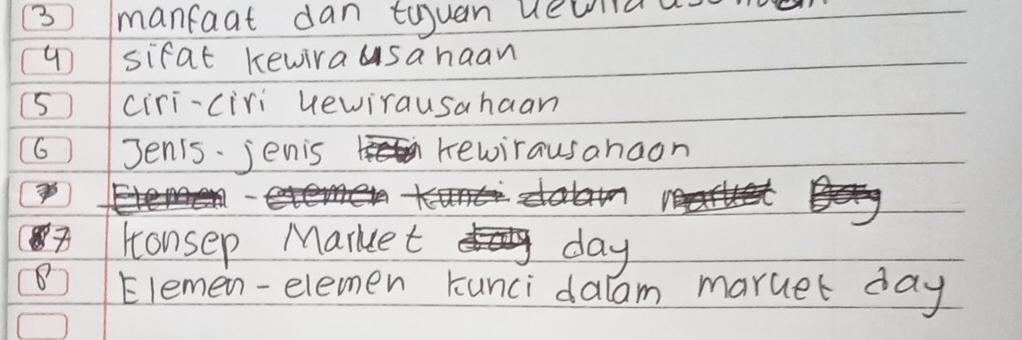 3 manfaat dan tujuan kewirausahaan
4 sifat kewirausahaan
5 ciri-ciri kewirausahaan
6 Jenis-jenis kewirausahaan
7 Elemen-elemen kunci dalam market Day
7 Konsep Market day
8 Elemen-elemen kunci dalam market day